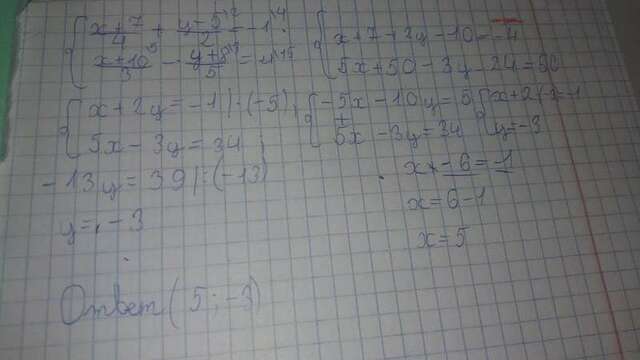 { x+7/4 + y-5/2 = -1 |4
{ x+10/3 - y+8/5 = 4 |15
{ x+7+2y-10=-4
{ 5x+50-3y-24=60
{ x+2y=-1 |·(-5)
{ 5x-3y=34
{ -5x-10y=5
+
{ 5x-3y=34
{ y=-3
-13y=39 |:(-13)
y=-3
x+-6=-1
x=6-1
x=5
Ответ (5;-3)